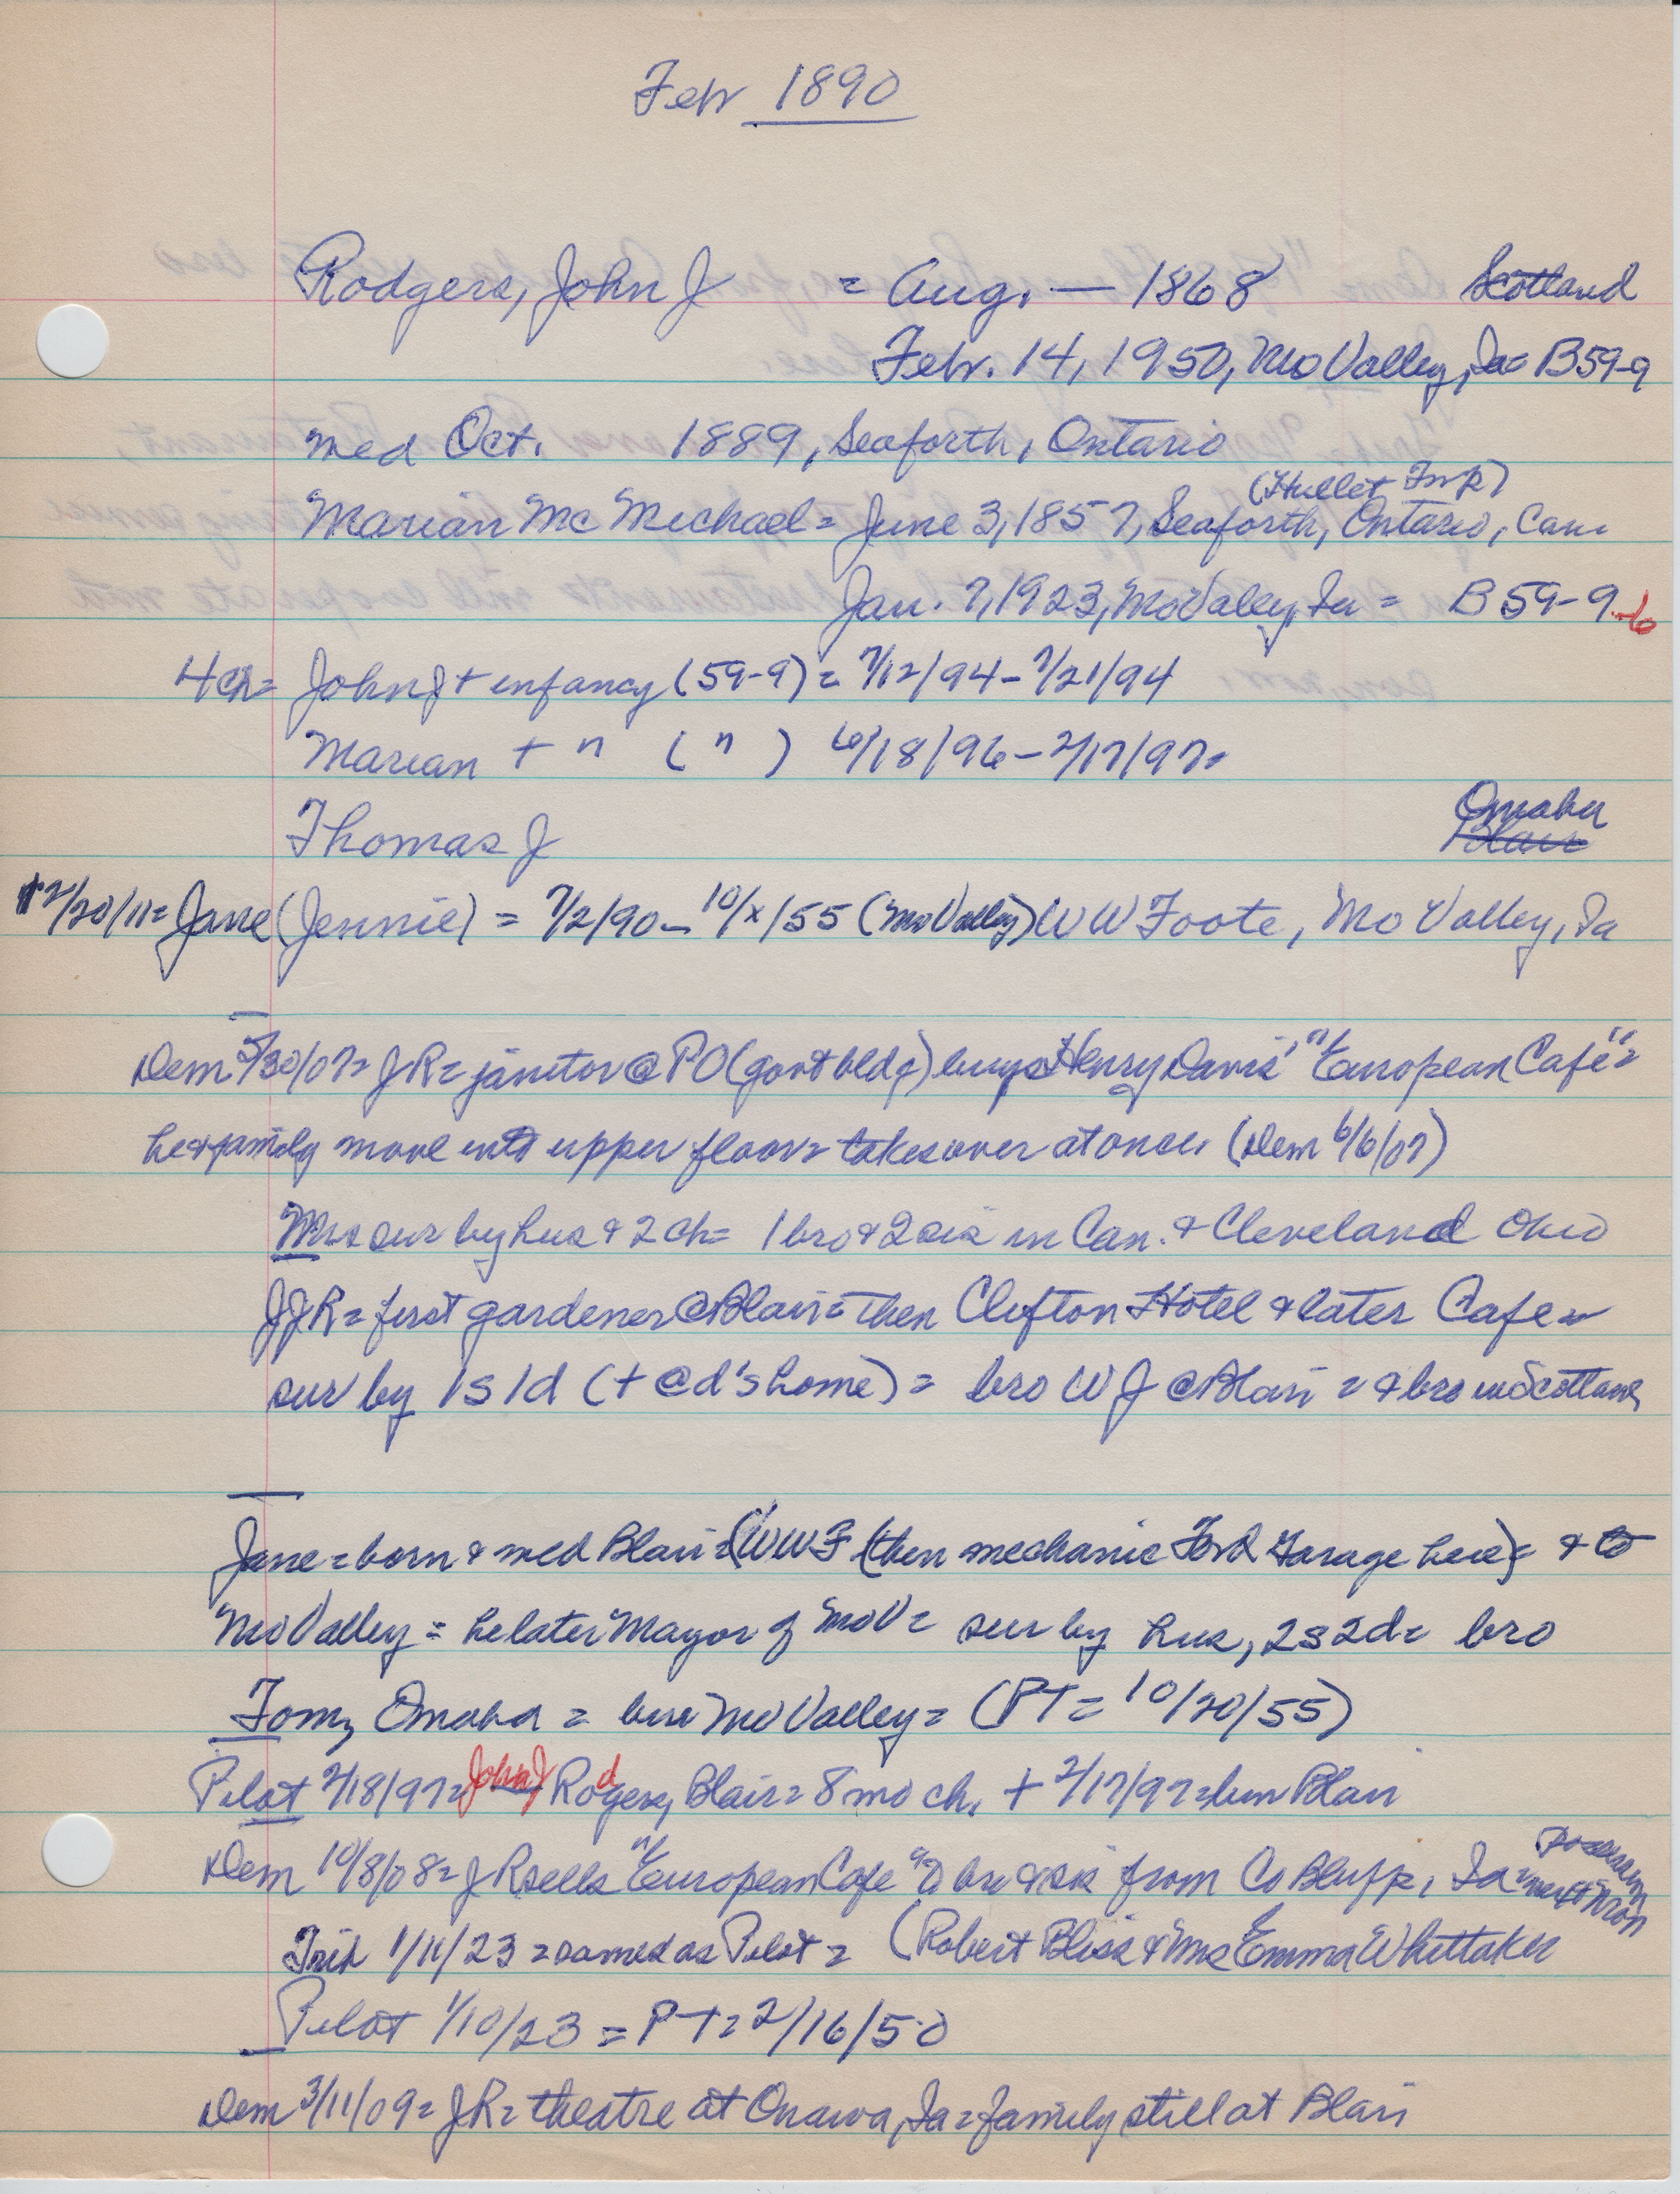 Febr 1890
Rodgers, John J = Aug. — 1868 Scotland
Febr. 14, 1950, Mo Valley, Ia = B59-9
med Oct. 1889, Seaforth, Ontario
(Hullet Twp)
Marian McMichael = June 3, 1857, Seaforth, Ontario, Can.
Jan. 7, 1923, Mo Valley, Ia = B 59-9-6
4 ch = John J + infancy (59-9) = 7/12/94 - 7/21/94
Marian + " ( " ) 6/18/96 - 2/17/97 =
Thomas J Omaha
Blair
2/20/11 = Jane (Jennie) = 7/2/90 - 10/x/55 (Mo Valley) W W Foote, Mo Valley, Ia
Dem 5/30/07 = J R = janitor @ PO (govt bldg) buys Henry Davis' "European Cafe" =
he & family move into upper floor = takes over at once. (Dem 6/6/07)
Mrs sur by hus & 2 ch = 1 bro & 2 sis in Can. & Cleveland Ohio
JJR = first gardener @ Blair = then Clifton Hotel & later Cafe =
sur by 1s 1d (+ @ d's home) = bro W J @ Blair = & bro in Scotland
Jane = born & med Blair = (WWF (then mechanic Ford Garage here) = & to
Mo Valley = he later Mayor of MoV = sur by hus, 2s 2d = bro
Tom, Omaha = bur Mo Valley = (PT = 10/20/55)
Pilot 2/18/97 = John J Rodgers, Blair = 8 mo ch. + 2/17/97 = bur Blair
Dem 10/8/08 = J R sells "European Cafe" to bro & sis from Co Bluffs, Ia = possession next Mon
Trib 1/11/23 = same as Pilot = (Robert Bliss & Mrs Emma Whittaker
Pilot 1/10/23 = PT = 2/16/50
Dem 3/11/09 = JR = theatre at Onawa, Ia = family still at Blair